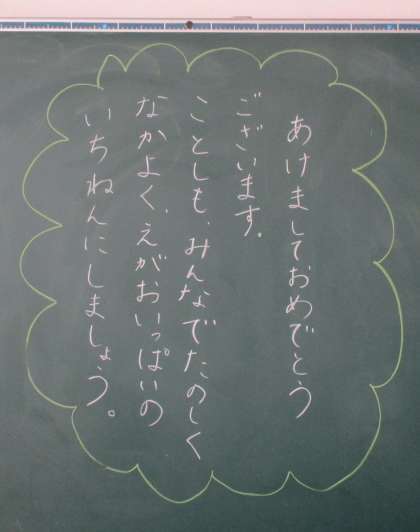 あけましておめでとう
ございます。
ことしも、みんなでたのしく
なかよく、えがおいっぱいの
いちねんにしましょう。